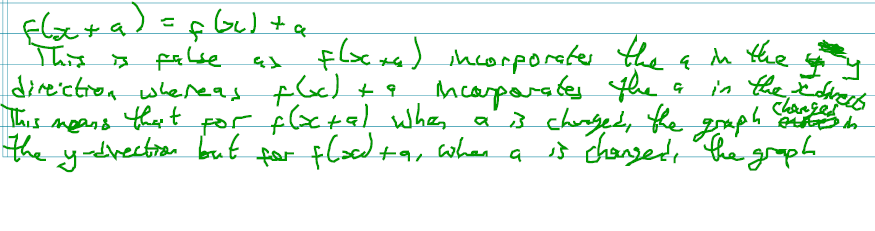 f(x + a) = f(x) + a
This is false as f(x+a) incorporates the a in the y
direction whereas f(x) + a incorporates the a in the x direct
This means that for f(x+a) when a is changed, the graph changes in
the y-direction but for f(x)+a, when a is changed, the graph